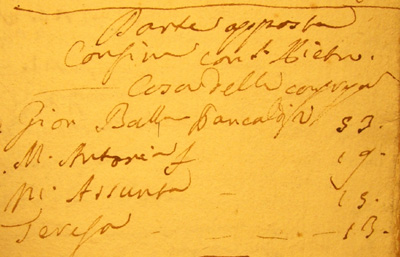 Parte opposta
Confina con S. Pietro.
Casa delle
Gion Batta Pancaldi 53.
M. Antonia f 19.
M. Assunta - 15.
Teresa - - - 13.